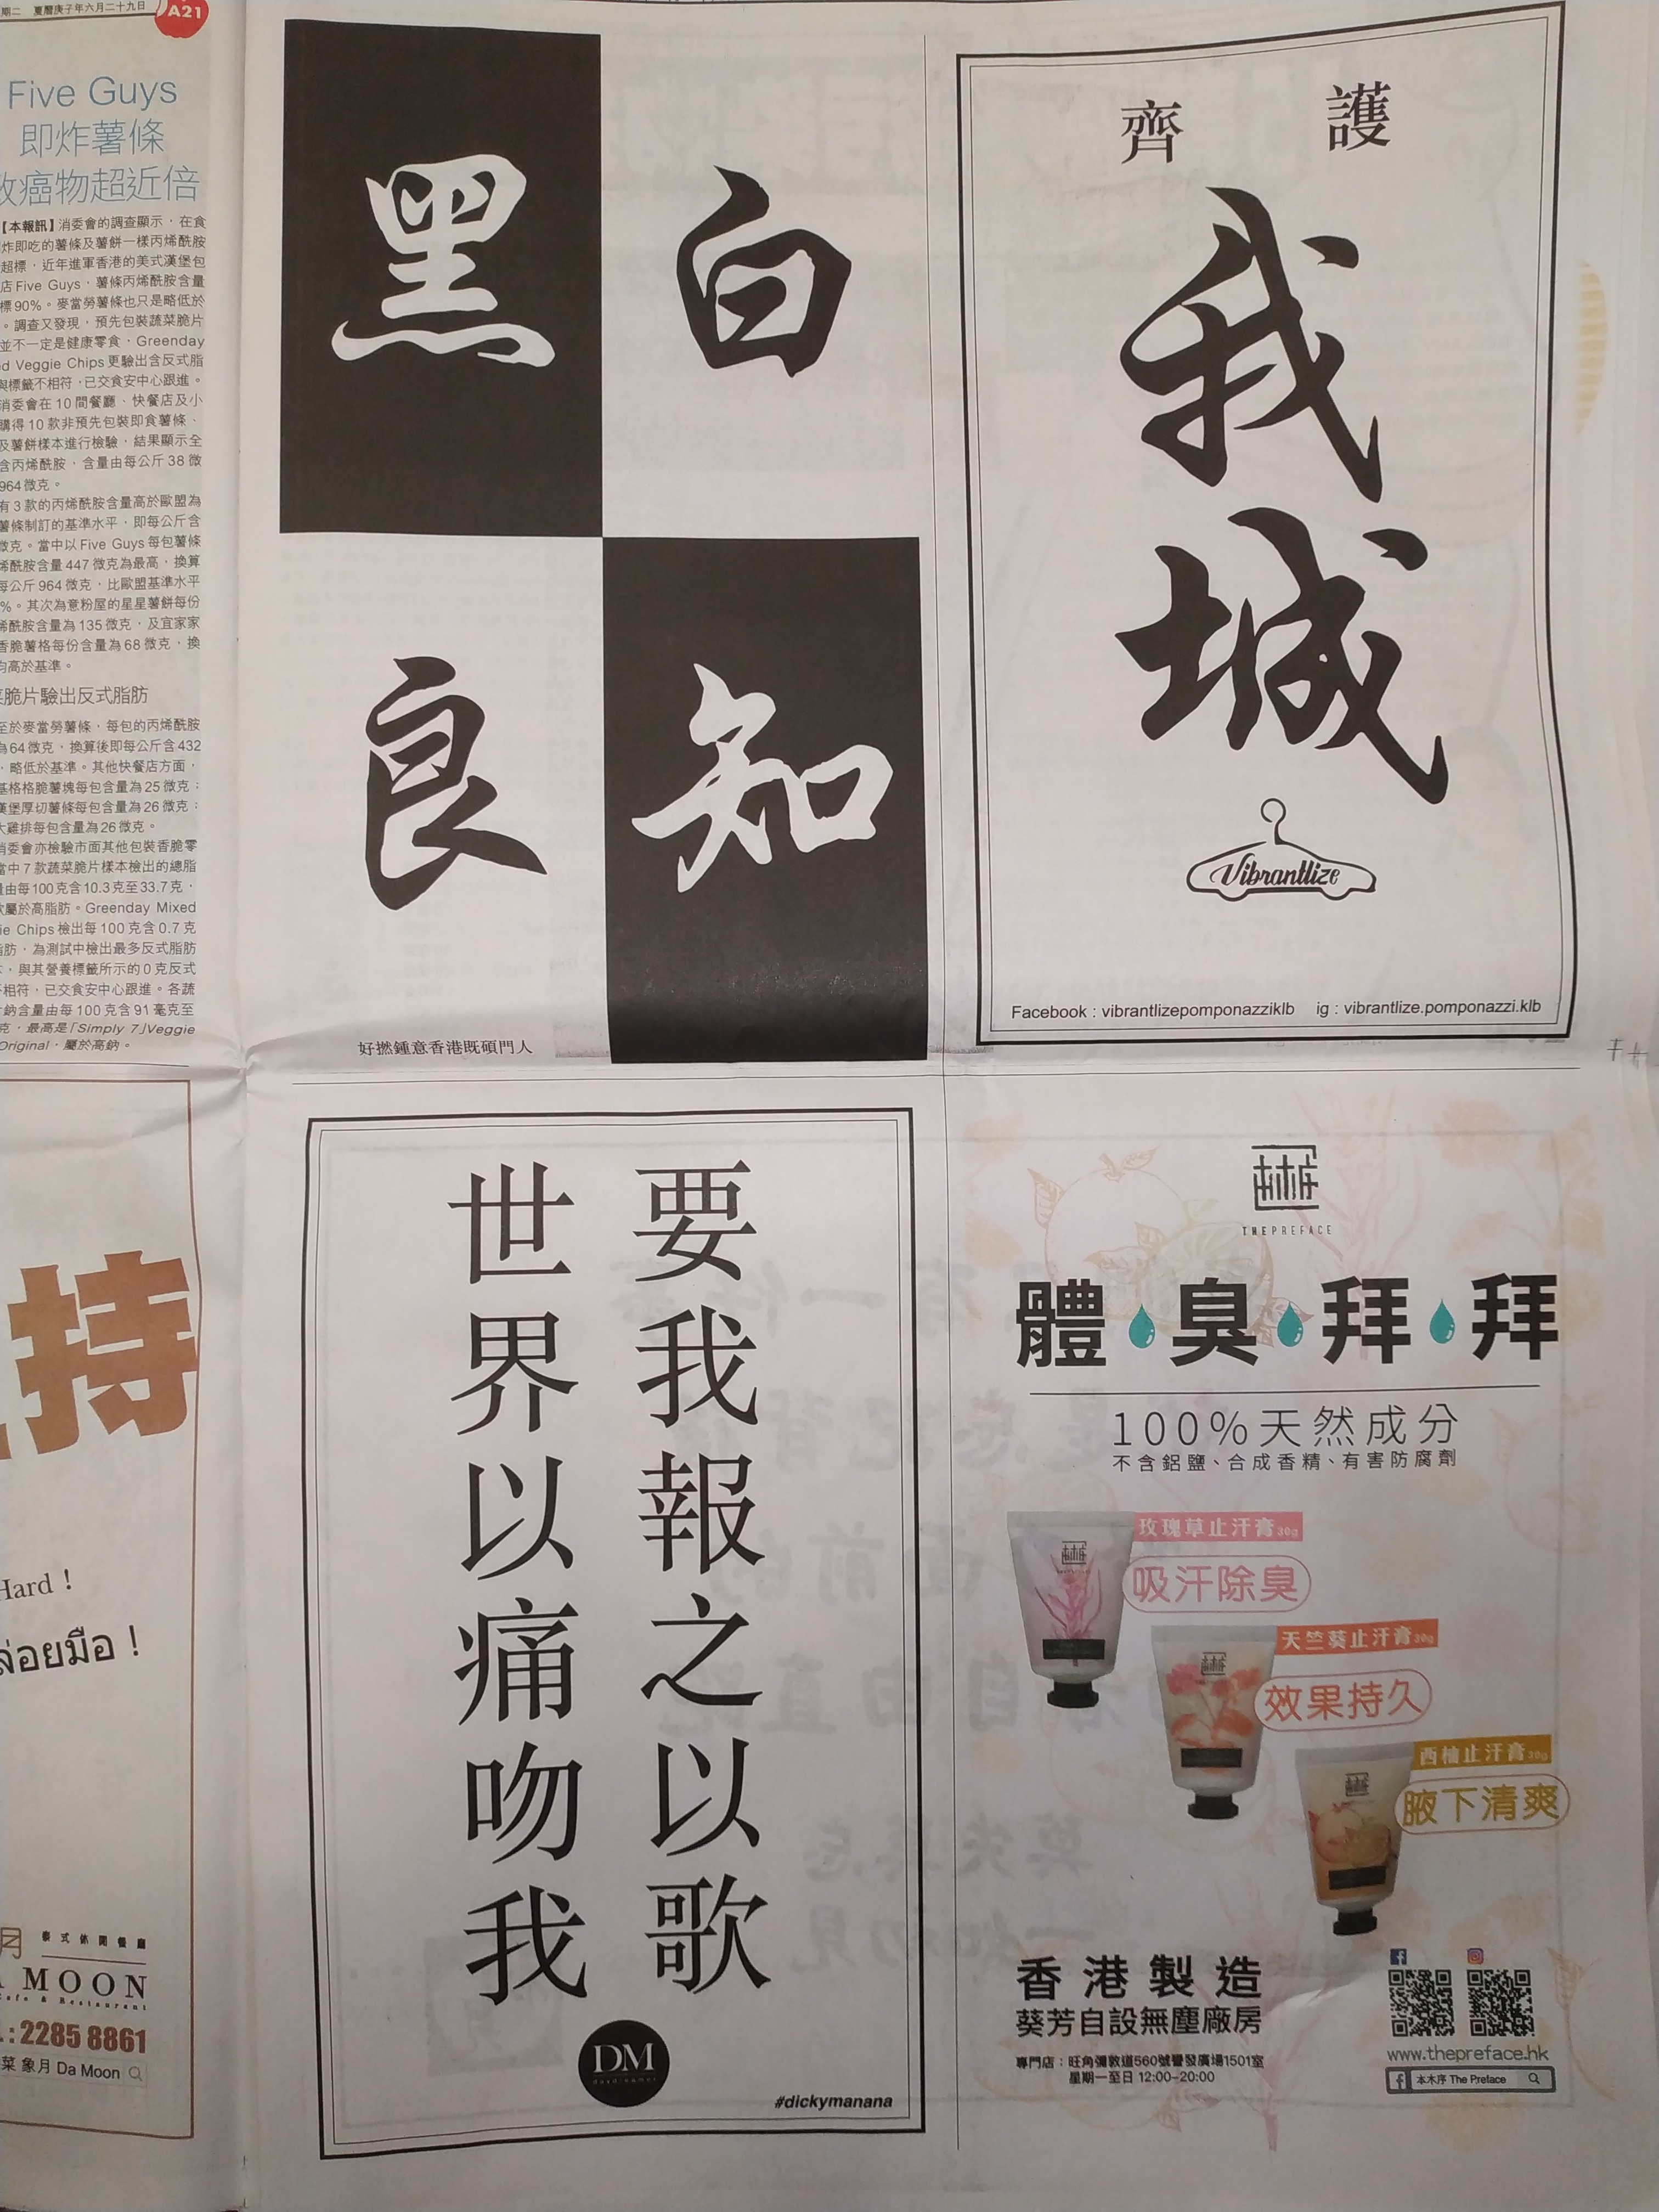 期二 夏曆庚子年六月二十九日
A21
Five Guys
即炸薯條
致癌物超近倍
【本報訊】消委會的調查顯示，在食
炸即吃的薯條及薯餅一樣丙烯酰胺
超標，近年進軍香港的美式漢堡包
店Five Guys，薯條丙烯酰胺含量
標90%。麥當勞薯條也只是略低於
。調查又發現，預先包裝蔬菜脆片
並不一定是健康零食，Greenday
d Veggie Chips更驗出含反式脂
與標籤不相符，已交食安中心跟進。
消委會在10間餐廳、快餐店及小
購得10款非預先包裝即食薯條、
及薯餅樣本進行檢驗，結果顯示全
含丙烯酰胺，含量由每公斤38微
964微克。
有3款的丙烯酰胺含量高於歐盟為
薯條制訂的基準水平，即每公斤含
微克。當中以Five Guys每包薯條
烯酰胺含量447微克為最高，換算
每公斤964微克，比歐盟基準水平
%。其次為意粉屋的星星薯餅每份
烯酰胺含量為135微克，及宜家家
香脆薯格每份含量為68微克，換
均高於基準。
菜脆片驗出反式脂肪
至於麥當勞薯條，每包的丙烯酰胺
為64微克，換算後即每公斤含432
，略低於基準。其他快餐店方面，
基格格脆薯塊每包含量為25微克；
漢堡厚切薯條每包含量為26微克；
大雞排每包含量為26微克。
消委會亦檢驗市面其他包裝香脆零
當中7款蔬菜脆片樣本檢出的總脂
量由每100克含10.3克至33.7克，
款屬於高脂肪。Greenday Mixed
ie Chips檢出每100克含0.7克
脂肪，為測試中檢出最多反式脂肪
，與其營養標籤所示的0克反式
不相符，已交食安中心跟進。各蔬
鈉含量由每100克含91毫克至
克，最高是「Simply 7」Veggie
Original，屬於高鈉。
持
Hard！
ล่อยมือ！
月 泰式休閒餐廳
A MOON
Cafe & Restaurant
2285 8861
菜 象月 Da Moon
黑 白
良 知
好撚鍾意香港既碩門人
齊 護
我
城
Vibrantlize
Facebook : vibrantlizepomponazziklb ig : vibrantlize.pomponazzi.klb
要我報之以歌
世界以痛吻我
DM
#dickymanana
THEPREFACE
體臭拜拜
100%天然成分
不含鋁鹽、合成香精、有害防腐劑
玫瑰草止汗膏30g
吸汗除臭
天竺葵止汗膏30g
效果持久
西柚止汗膏30g
腋下清爽
香港製造
葵芳自設無塵廠房
專門店：旺角彌敦道560號譽發廣場1501室
星期一至日 12:00-20:00
www.thepreface.hk
本木序 The Preface